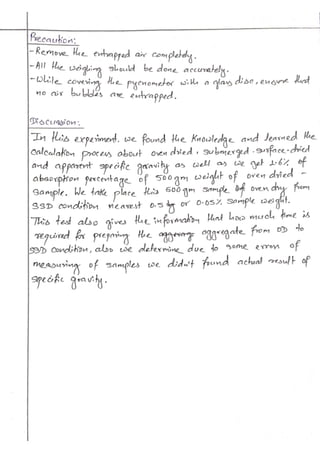 Precaution:
- Remove the entrapped air completely.
- All the weighing should be done accurately.
- While covering the pycnometer with a glass disc, ensure that
no air bubbles are entrapped.
Discussion:
In this experiment. we found the knowledge and learned the
calculation process about oven dried, submerged. surface-dried
and apparent specific gravity as well as we get 1.6% of
absorption percentage of 500gm weight of oven dried -
sample. We take place this 500gm sample of oven dry from
SSD condition nearest 0.5 kg or 0.05% sample weight.
This test also gives the information that how much time is
required for preparing the aggregate from OD to
SSD condition, also we determine due to some errors of
measuring of samples we didn't found actual result of
specific gravity.